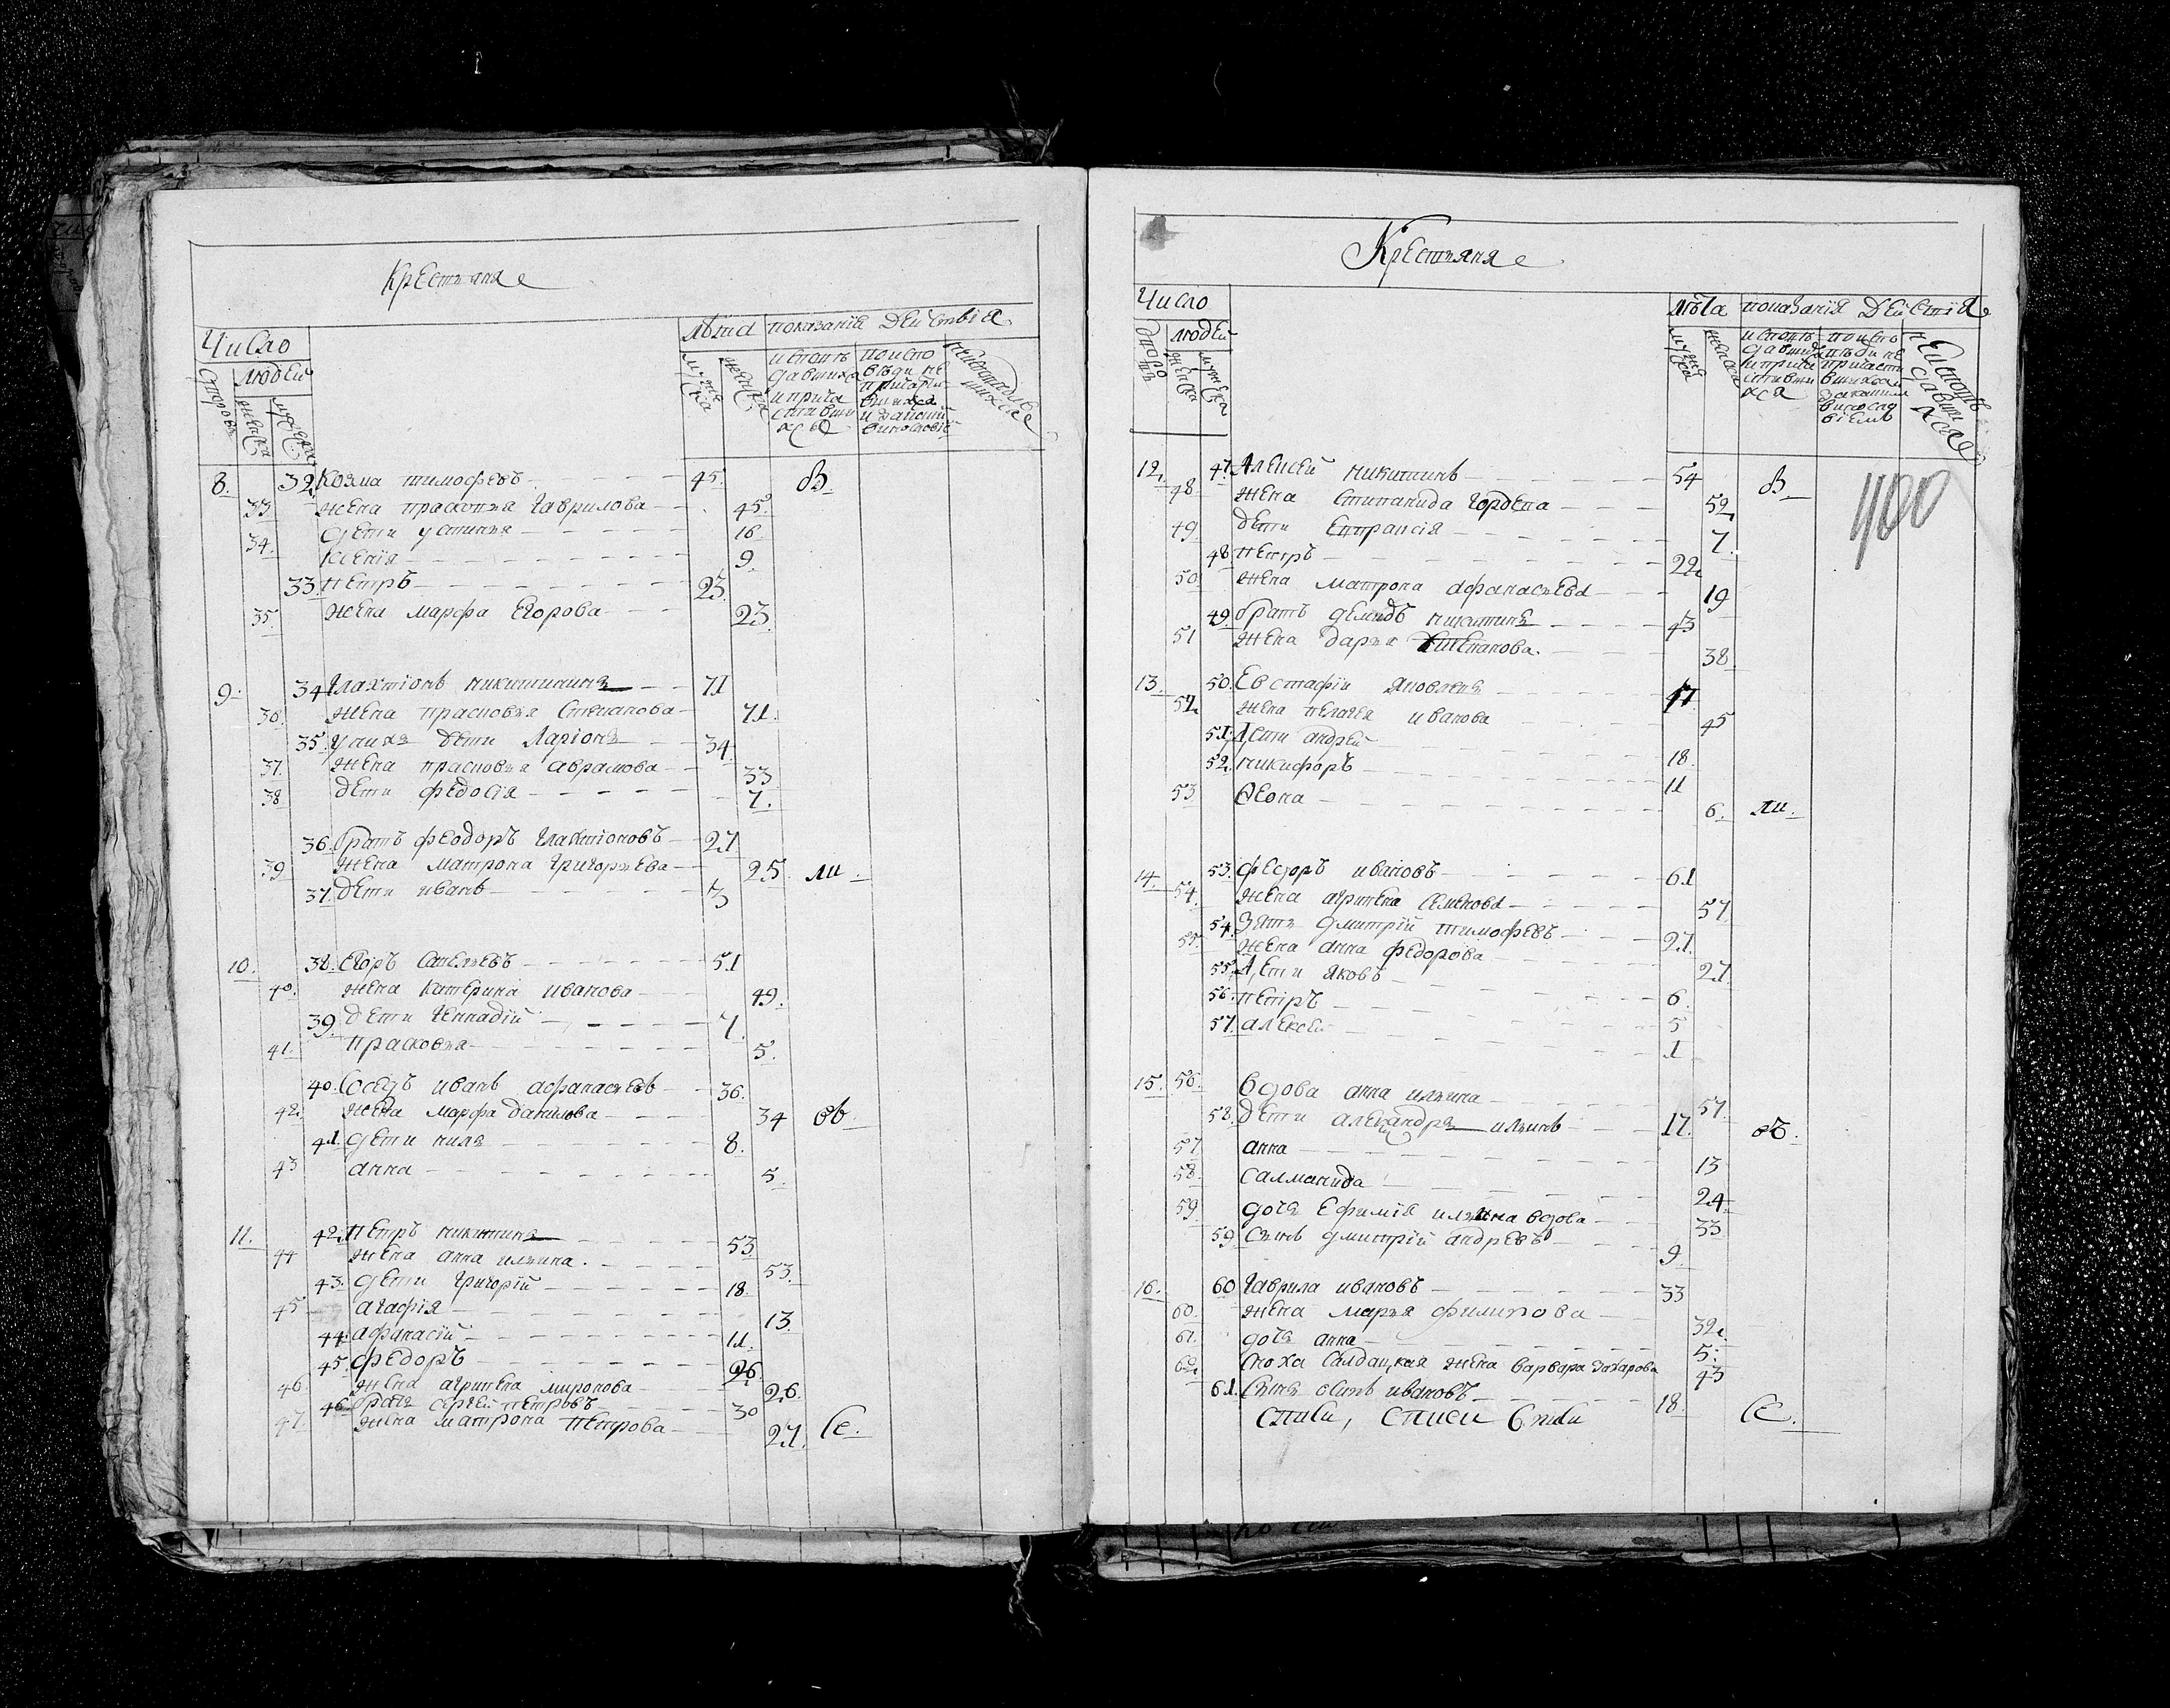 Крестьяня
Число
лѣта показанія Действія
строровъ людей
женска мужска
мужска женска
исповѣдавшихся и причастившихся
по исповѣди не причастившихся
неисповѣдавшихся
8. 32. Козма тимофѣевъ 45. в
33. жена прасковья гаврилова 45.
34. дети устинья 16
ксенія 9.
33. петръ 23
35. жена марфа Егорова 23.
9. 34 Глахтіонъ никитинъ 71
36. жена прасковья Степанова 71.
35. у нихъ дети Ларіонъ 34
37. жена прасковья аврамова 33
38 дети федосія 7.
36. братъ феодоръ Глактіоновъ 27
39 жена матрона григорьева 25 ли.
37. дети иванъ 3
10. 38. Егоръ Савельевъ 51
40. жена Катерина иванова 49.
39. дети Геннадій 7.
41. прасковья 5.
40. Соседъ иванъ афанасьевъ 36.
42. жена марфа данилова 34 ов.
41. дети нилъ 8.
43 анна 5.
11. 42. петръ никитинъ 53
44 жена анна ильина. 53.
43. дети Григорій 18.
45 агафія 13.
44. афанасій 11.
45. федоръ 26
46 жена агрипена миронова 26.
46. братъ сергей петровъ 30
47. жена матрона петрова 27. се.
Крестьяня
Число
лѣта показанія Действія
людей
женска мужска
мужска женска
400
12. 47. Алексей никитинъ 54 в
48 жена Степанида Гордена 52
49 дети Епраксія 7.
48 петръ 22
50. жена матрона афанасьева 19
49. братъ демидъ никитинъ 43
51 жена дарья Степанова. 38
13. 50. Евстафій яковлевъ 47
52 жена пелагея иванова 45
51. дети андрей 18.
52. никифоръ 11
53 Ѳеона 6. ли.
14. 53. федоръ ивановъ 61
54. жена агрипена семенова 57
54. зять дмитрій тимофѣевъ 27.
55. жена анна федорова 27
55. дети яковъ 6.
56. петръ 5
57. алексей 1
15. 56. вдова анна ильина 57.
58. дети александръ ильинъ 17. ов.
57. анна 13
58. салманида 24
59 дочь Ефимія ильина вдова 33
59 сынъ дмитрій андреевъ 9.
16. 60 Гаврила ивановъ 33
60. жена марья филипова 32.
61. дочь анна 5.
62. сноха Салдацкая жена варвара захарова 43
61. сынъ осипъ ивановъ 18. се.